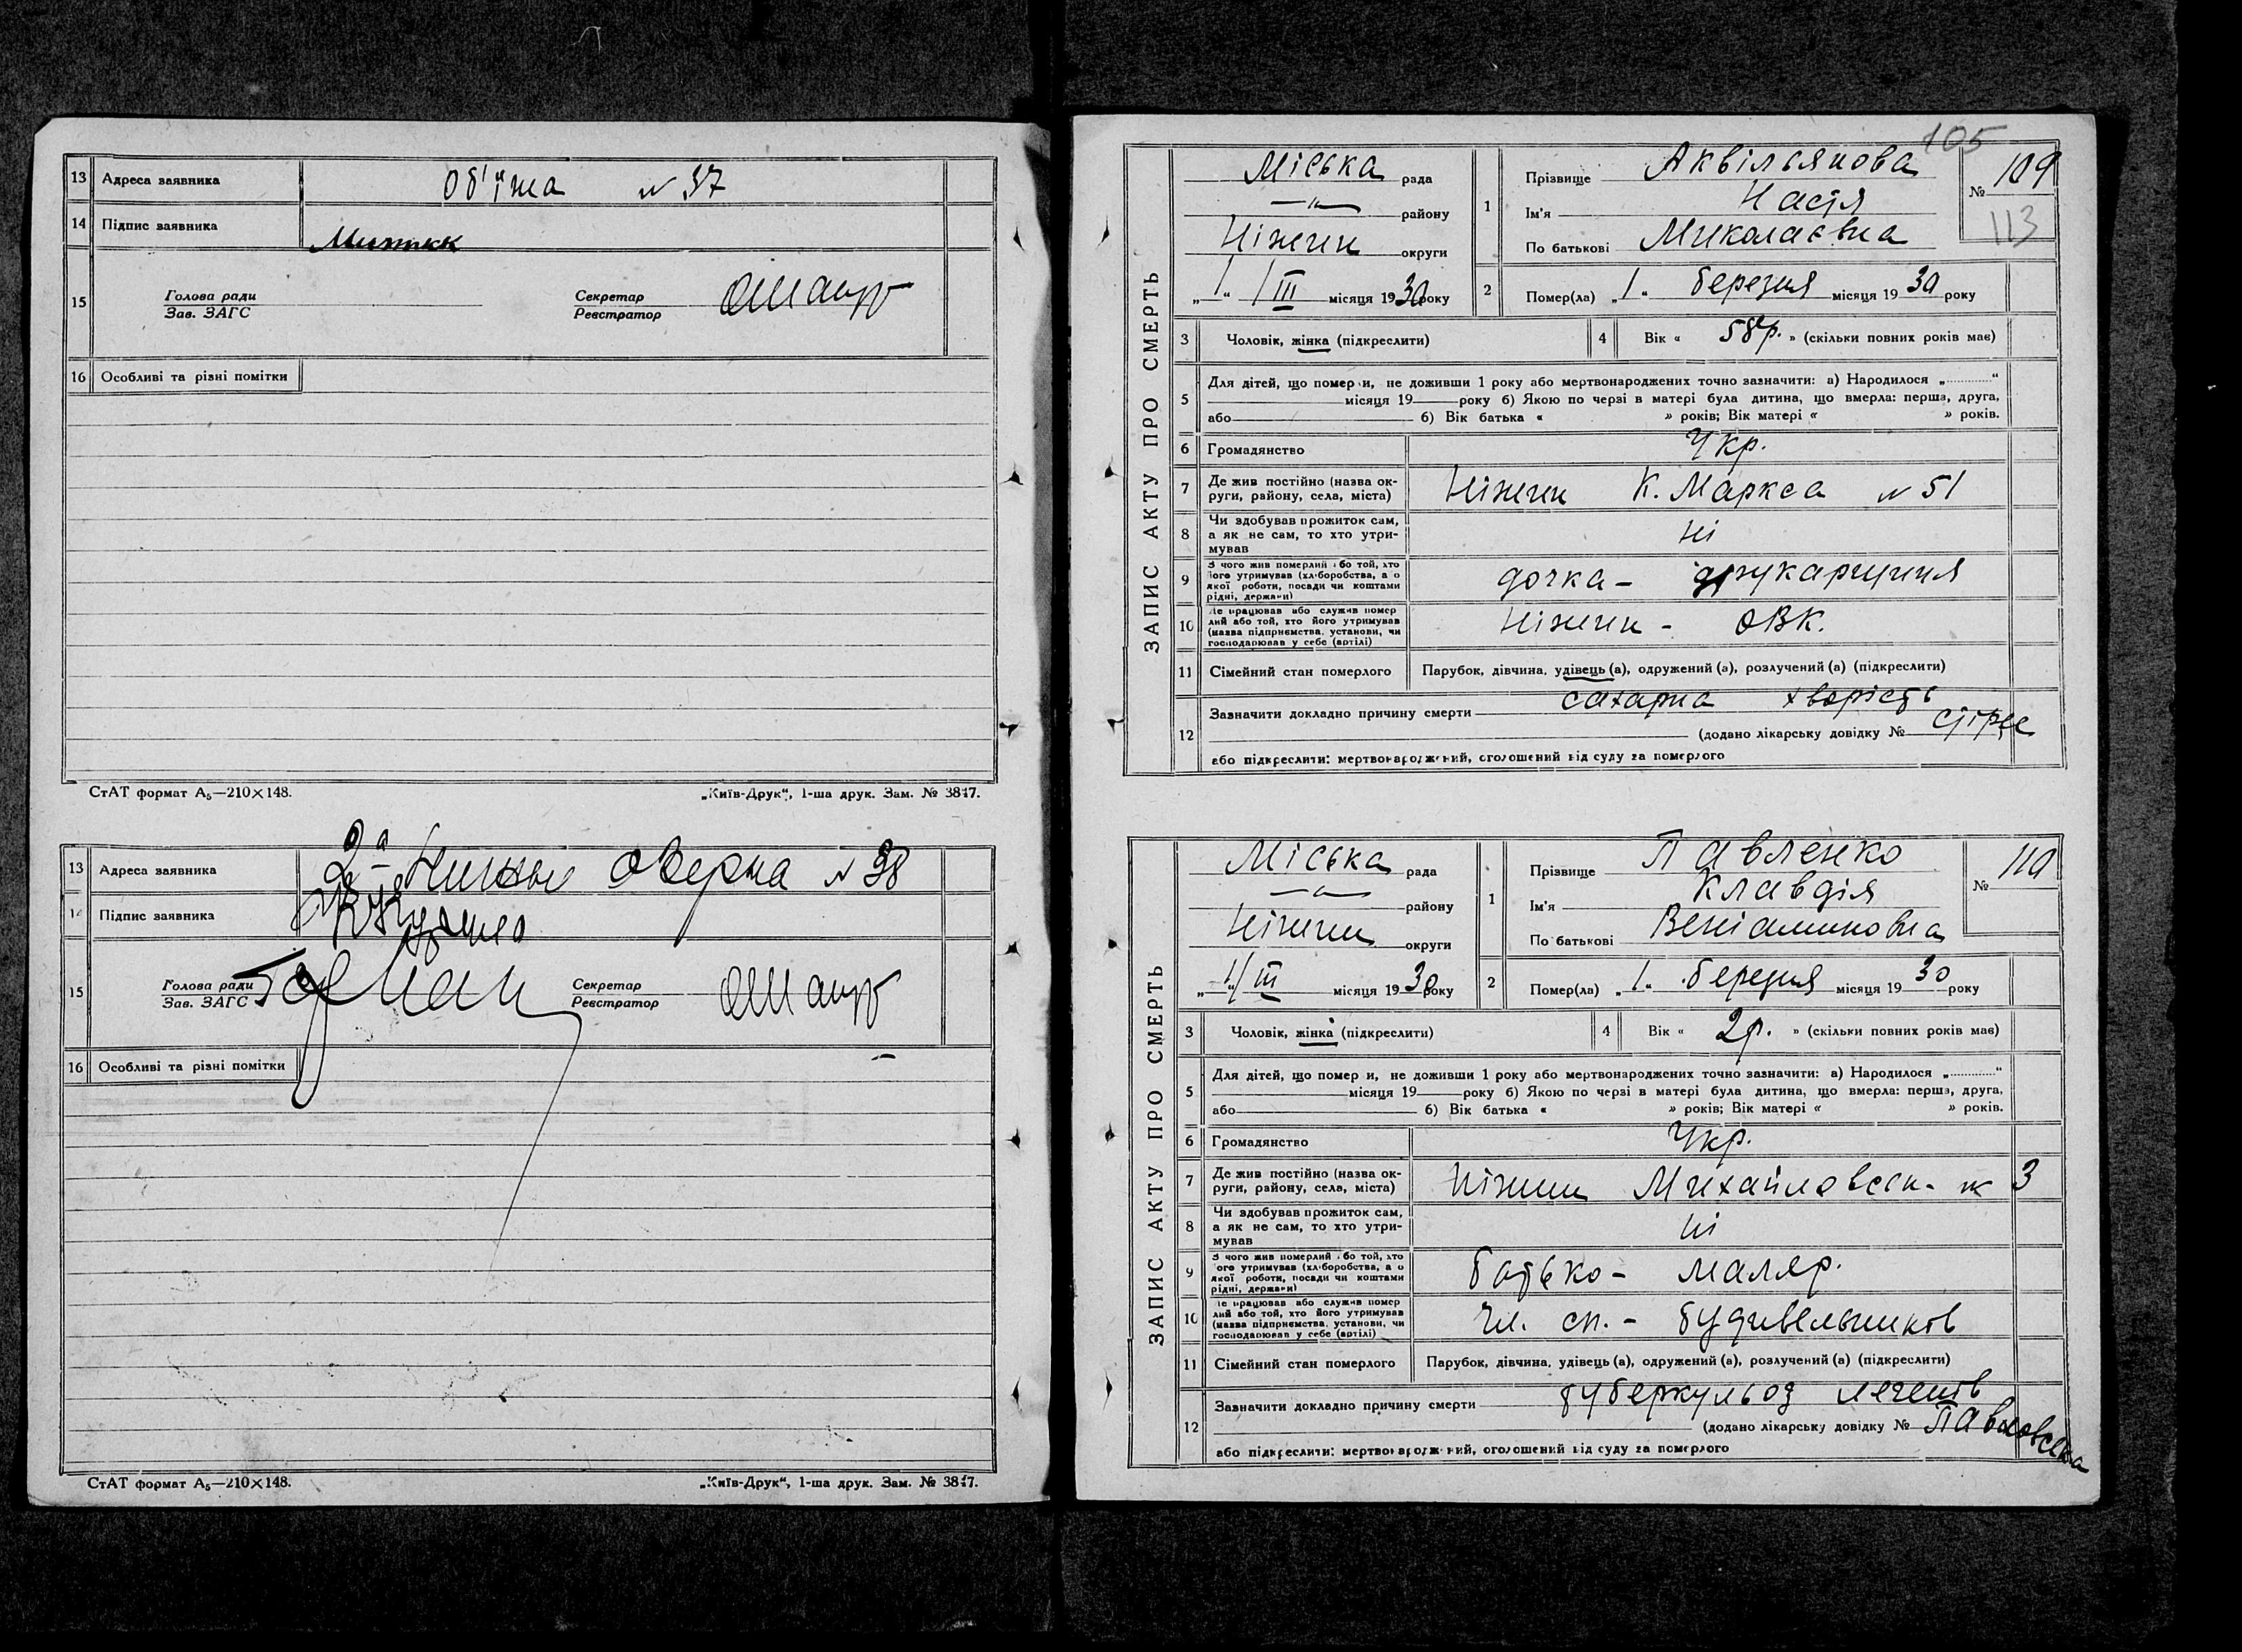 13 Адреса заявника Об'їжа № 37
14 Підпис заявника
15 Голова ради Секретар
Зав. ЗАГС Реєстратор
16 Особливі та різні помітки
СтАТ формат А5—210×148. „Київ-Друк“, 1-ша друк. Зам. № 3847.
13 Адреса заявника № 38
14 Підпис заявника
15 Голова ради Секретар
Зав. ЗАГС Реєстратор
16 Особливі та різні помітки
СтАТ формат А5—210×148. „Київ-Друк“, 1-ша друк. Зам. № 3847.
105
ЗАПИС АКТУ ПРО СМЕРТЬ
Міська рада
— „ — району
Ніжин округи
„1“ /III місяця 1930 року
1 Прізвище Аквільянова
Ім'я Настя
По батькові Миколаєвна
№ 109
113
2 Помер(ла) „1“ березня місяця 1930 року
3 Чоловік, жінка (підкреслити) 4 Вік « 58 р. » (скільки повних років має)
5 Для дітей, що померли, не доживши 1 року або мертвонароджених точно зазначити: а) Народилося „ “
місяця 19 року б) Якою по черзі в матері була дитина, що вмерла: перша, друга,
або б) Вік батька « » років; Вік матері « » років.
6 Громадянство Укр.
7 Де жив постійно (назва округи, району, села, міста) Ніжин К. Маркса № 51
8 Чи здобував прожиток сам,
а як не сам, то хто утри-
мував ні
9 З чого жив померлий або той, хто
його утримував (хліборобства, а о
якої роботи, посади чи коштами
рідні, держави) дочка — друкарщиця
10 Де працював або служив помер
лий або той, хто його утримував
(назва підприємства, установи, чи
господарював у себе (артілі) Ніжин — ОВК.
11 Сімейний стан померлого Парубок, дівчина, удівець (а), одружений (а), розлучений (а) (підкреслити)
12 Зазначити докладно причину смерти сахарна хворість
(додано лікарську довідку №
або підкреслити: мертвонароджений, оголошений від суду за померлого
ЗАПИС АКТУ ПРО СМЕРТЬ
Міська рада
— „ — району
Ніжин округи
„1“/III місяця 1930 року
1 Прізвище Павленко
Ім'я Клавдія
По батькові Веніаминовна
№ 110
2 Помер(ла) „1“ березня місяця 1930 року
3 Чоловік, жінка (підкреслити) 4 Вік « 2 р. » (скільки повних років має)
5 Для дітей, що померли, не доживши 1 року або мертвонароджених точно зазначити: а) Народилося „ “
місяця 19 року б) Якою по черзі в матері була дитина, що вмерла: перша, друга,
або б) Вік батька « » років; Вік матері « » років.
6 Громадянство Укр.
7 Де жив постійно (назва округи, району, села, міста) Ніжин Михайловськ. № 3
8 Чи здобував прожиток сам,
а як не сам, то хто утри-
мував ні
9 З чого жив померлий або той, хто
його утримував (хліборобства, а о
якої роботи, посади чи коштами
рідні, держави) батько — маляр.
10 Де працював або служив помер
лий або той, хто його утримував
(назва підприємства, установи, чи
господарював у себе (артілі) чл. сп. — будивельників
11 Сімейний стан померлого Парубок, дівчина, удівець (а), одружений (а), розлучений (а) (підкреслити)
12 Зазначити докладно причину смерти туберкульоз легенів
(додано лікарську довідку № Павловська
або підкреслити: мертвонароджений, оголошений від суду за померлого